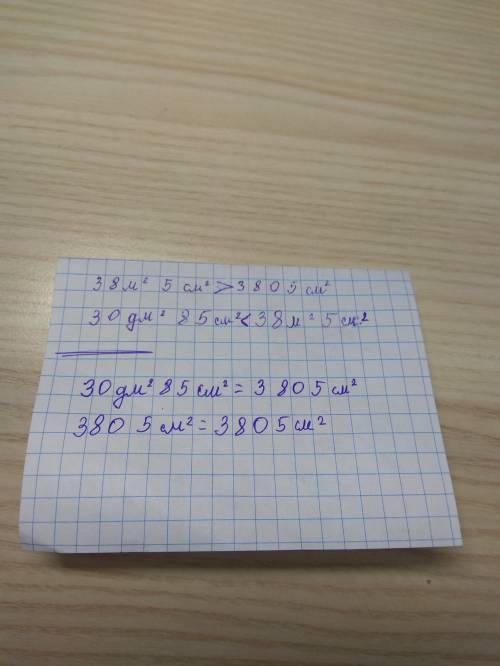 38м² 5 см² > 3805см²
30 дм² 85 см² < 38 м² 5 см²
30дм² 85 см² = 3 805 см²
380 5 см² = 3805 см²